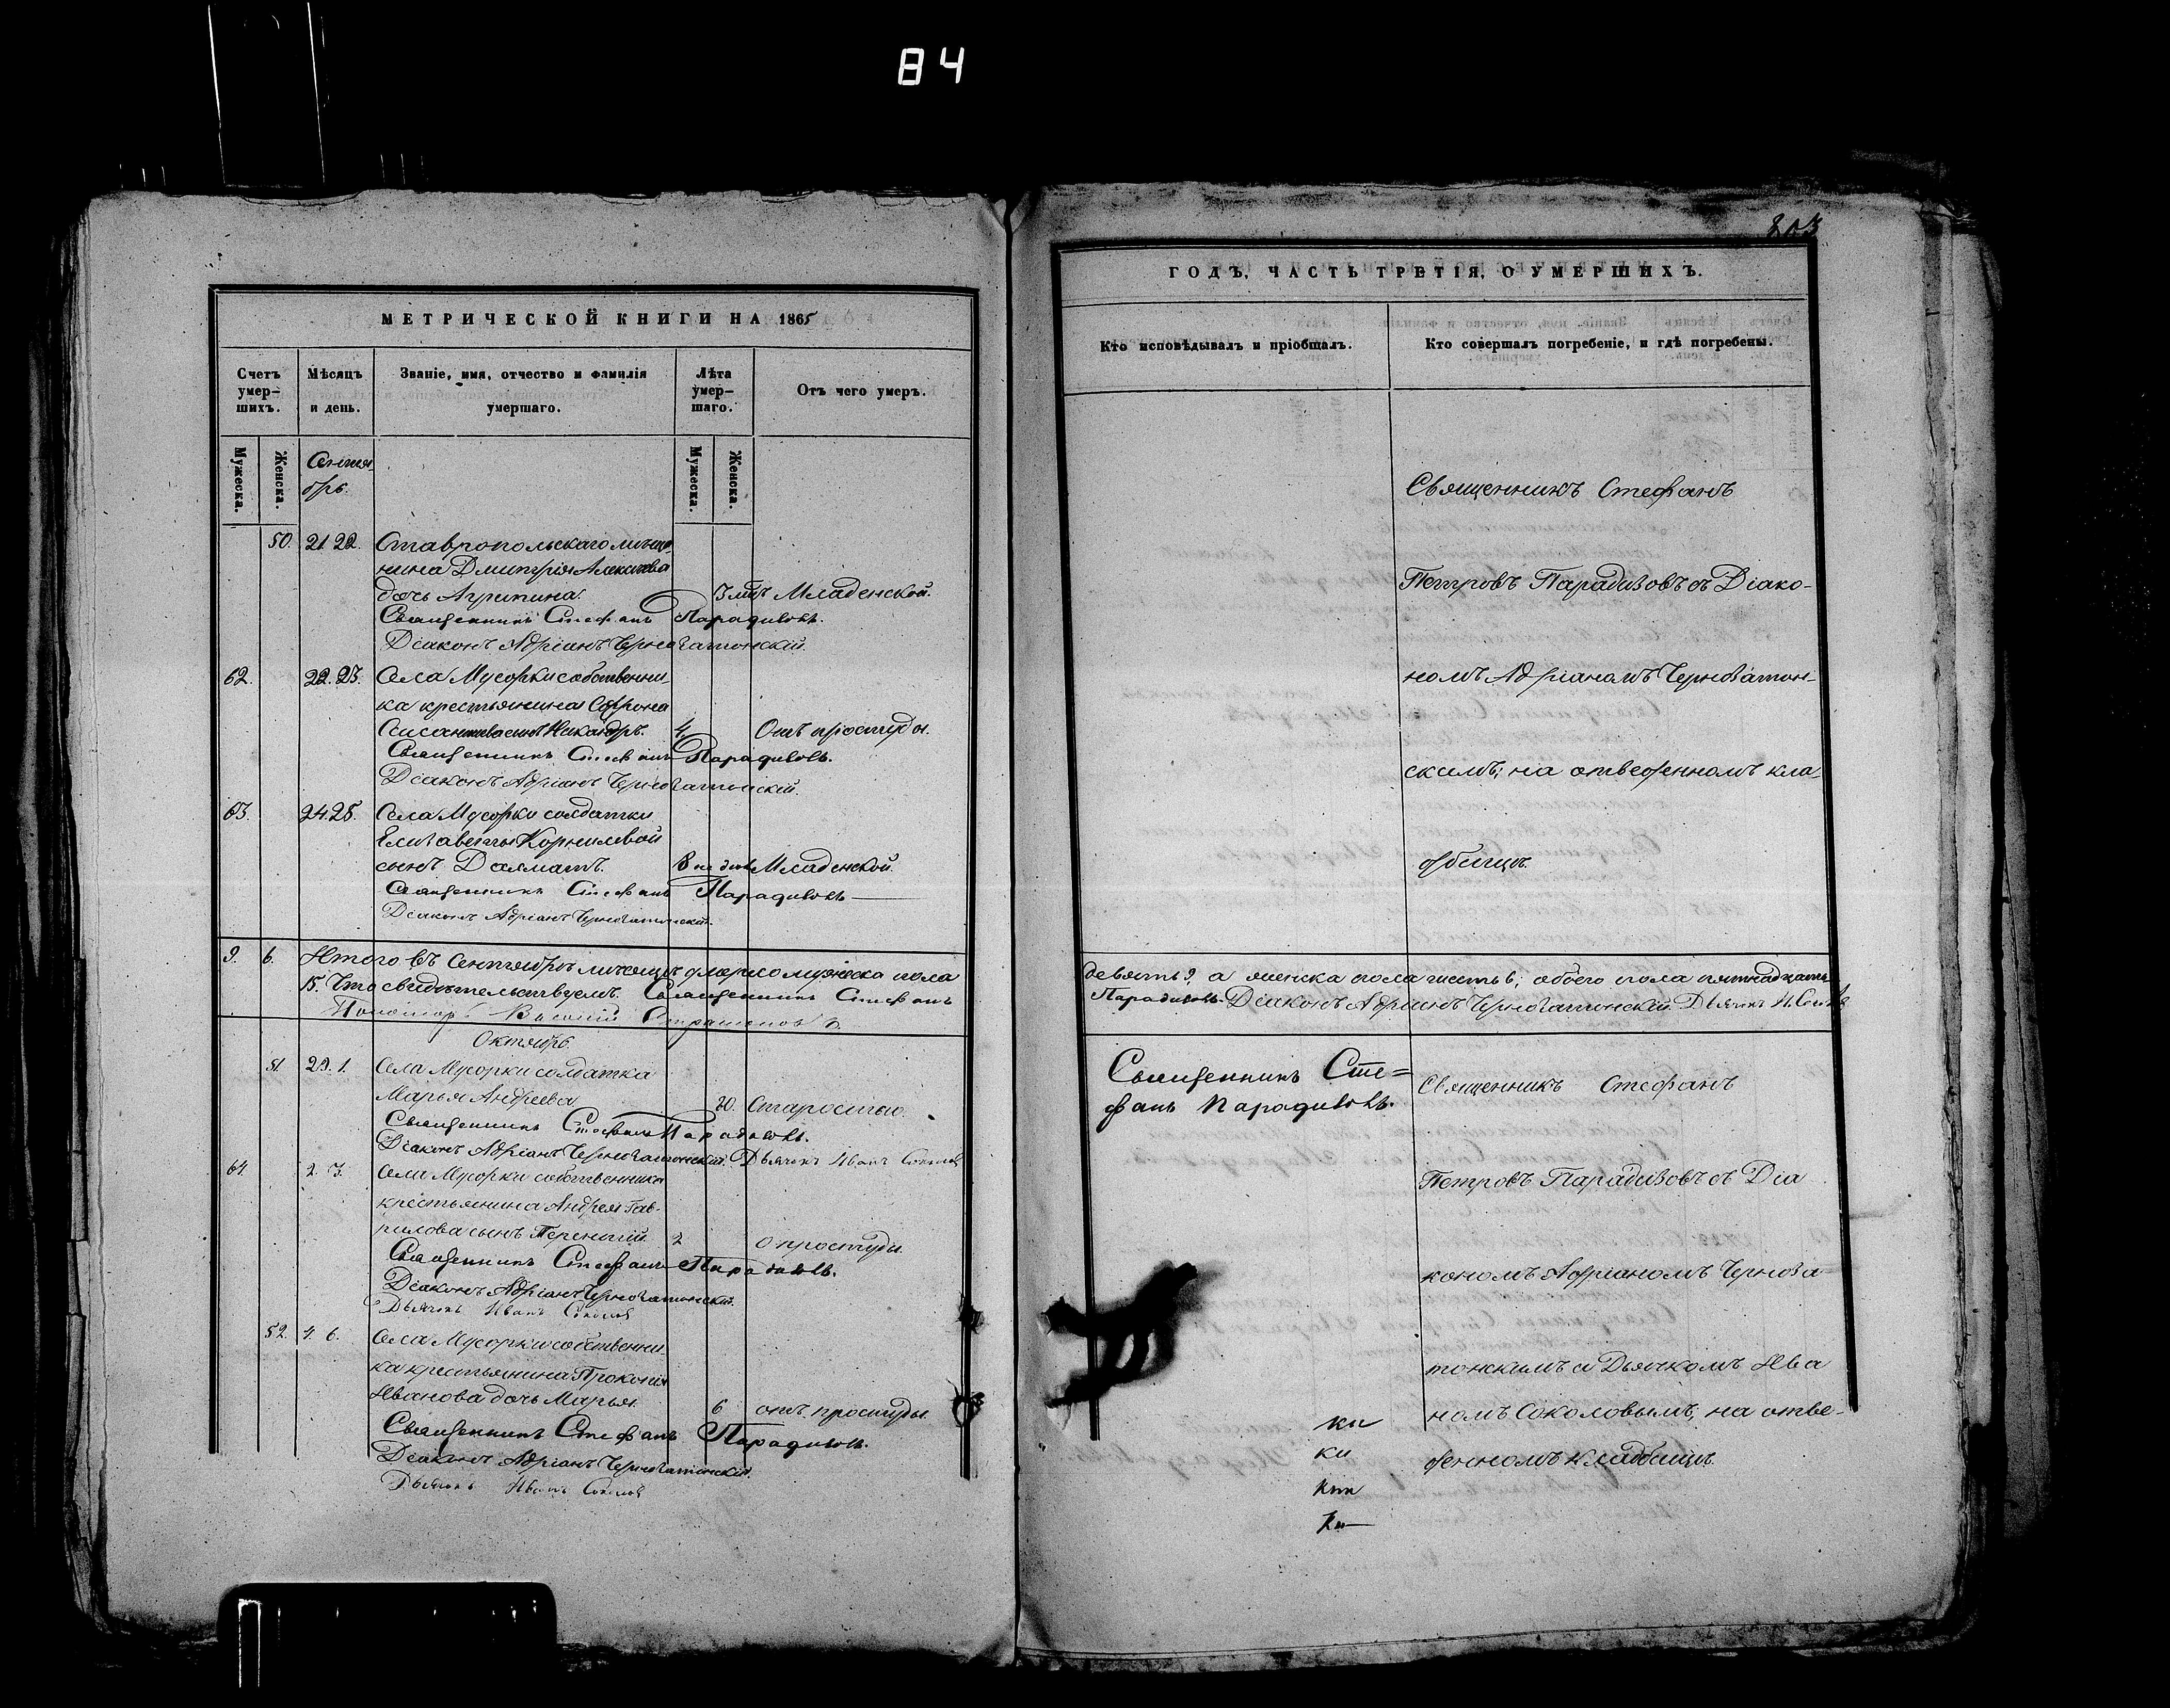 84
МЕТРИЧЕСКОЙ КНИГИ НА 1865
Счетъ умер-шихъ.
Мѣсяцъ и день.
Званіе, имя, отчество и фамилія умершаго.
Лѣта умер-шаго.
Отъ чего умеръ.
Мужеска.
Женска.
Мужеска.
Женска.
Сентя-
брь.
50. 21. 22. Ставропольскаго мѣща-
нина Дмитрія Алексѣева
дочь Агрипина. Младенской.
Священникъ Стефанъ Парадизовъ.
Діаконъ Адріанъ Черногатонскій.
62. 22. 23. Села Мусорки собственни-
ка крестьянина Софрона
сынъ Никандръ. 4 Отъ простуды.
Священникъ Стефанъ Парадизовъ.
Діаконъ Адріанъ Черногатонскій.
63. 24. 25. Села Мусорки солдатки
Елизаветы Корниловой
сынъ Далматъ. 8 Младенской.
Священникъ Стефанъ Парадизовъ
Діаконъ Адріанъ Черногатонскій.
9. 6. Итого въ Сентябрѣ мѣсяцѣ умерло мужеска пола
15. Что свидѣтельствуемъ. Священникъ Стефанъ
Пономарь
Октябрь.
51. 29. 1. Села Мусорки солдатка
Марья Андреева 70. Старостію.
Священникъ Стефанъ Парадизовъ.
Діаконъ Адріанъ Черногатонскій. Дьячекъ Иванъ Соколовъ
64. 2. 3. Села Мусорки собственника
крестьянина Андрея Гав-
рилова сынъ Терентій. 2 О простуды.
Священникъ Стефанъ Парадизовъ.
Діаконъ Адріанъ Черногатонскій.
Дьячекъ Иванъ Соколовъ
52. 4. 6. Села Мусорки собственни-
ка крестьянина Прокопія
Иванова дочь Марья. 6 отъ простуды.
Священникъ Стефанъ Парадизовъ.
Діаконъ Адріанъ Черногатонскій.
Дьячекъ Иванъ Соколовъ
203
ГОДЪ, ЧАСТЬ ТРЕТІЯ, О УМЕРШИХЪ.
Кто исповѣдывалъ и пріобщалъ.
Кто совершалъ погребеніе, и гдѣ погребены.
Священникъ Стефанъ
Петровъ Парадизовъ съ Діако-
номъ Адріаномъ Черногатон-
скимъ; на отведенномъ кла-
дбищѣ.
девять 9, а женска пола шесть 6; обоего пола пятнадцать
Парадизовъ. Діаконъ Адріанъ Черногатонскій. Дьячекъ
Священникъ Сте=
фанъ Парадизовъ.
Священникъ Стефанъ
Петровъ Парадизовъ съ Діа
кономъ Адріаномъ Чернога
тонскимъ и Дьячкомъ Ива
номъ Соколовымъ; на отве-
денномъ кладбищѣ.